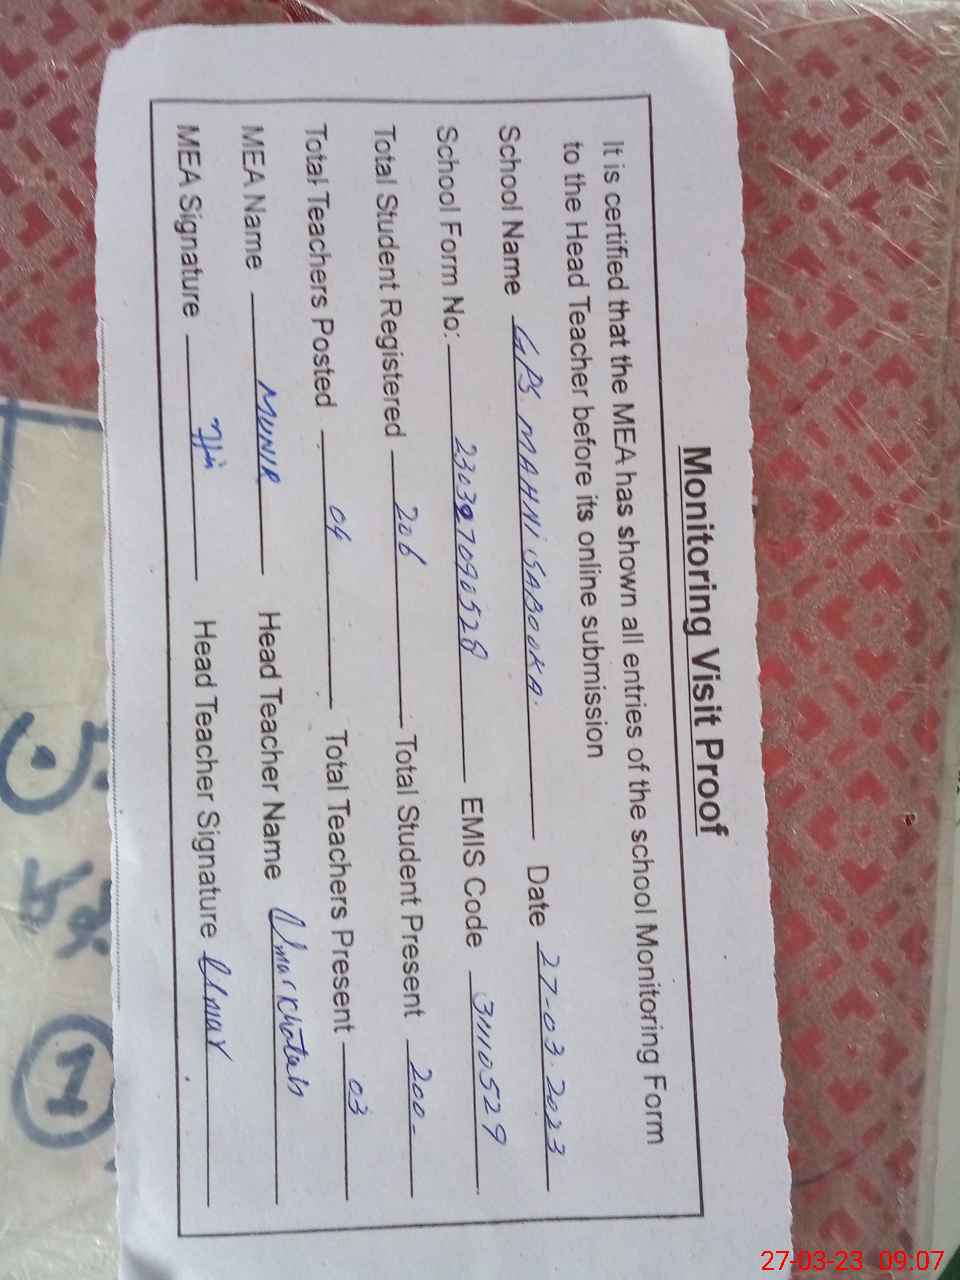 Monitoring Visit Proof
It is certified that the MEA has shown all entries of the school Monitoring Form
to the Head Teacher before its online submission
School Name GPS MAHNI SABOOKA. Date 27-03.2023
School Form No: 230327090528 EMIS Code 31110529
Total Student Registered 206 Total Student Present 200-
Total Teachers Posted 04 Total Teachers Present 03
MEA Name MUNIR Head Teacher Name Umar Khatab
MEA Signature Head Teacher Signature Umar
1
27-03-23 09:07